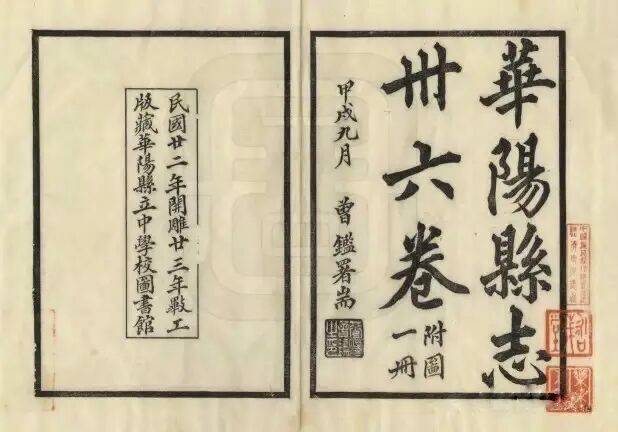 華陽縣志
卅六卷
附圖
一冊
甲戌九月 曾鑑署耑
民國廿二年開雕廿三年工
版藏華陽縣立中學校圖書館